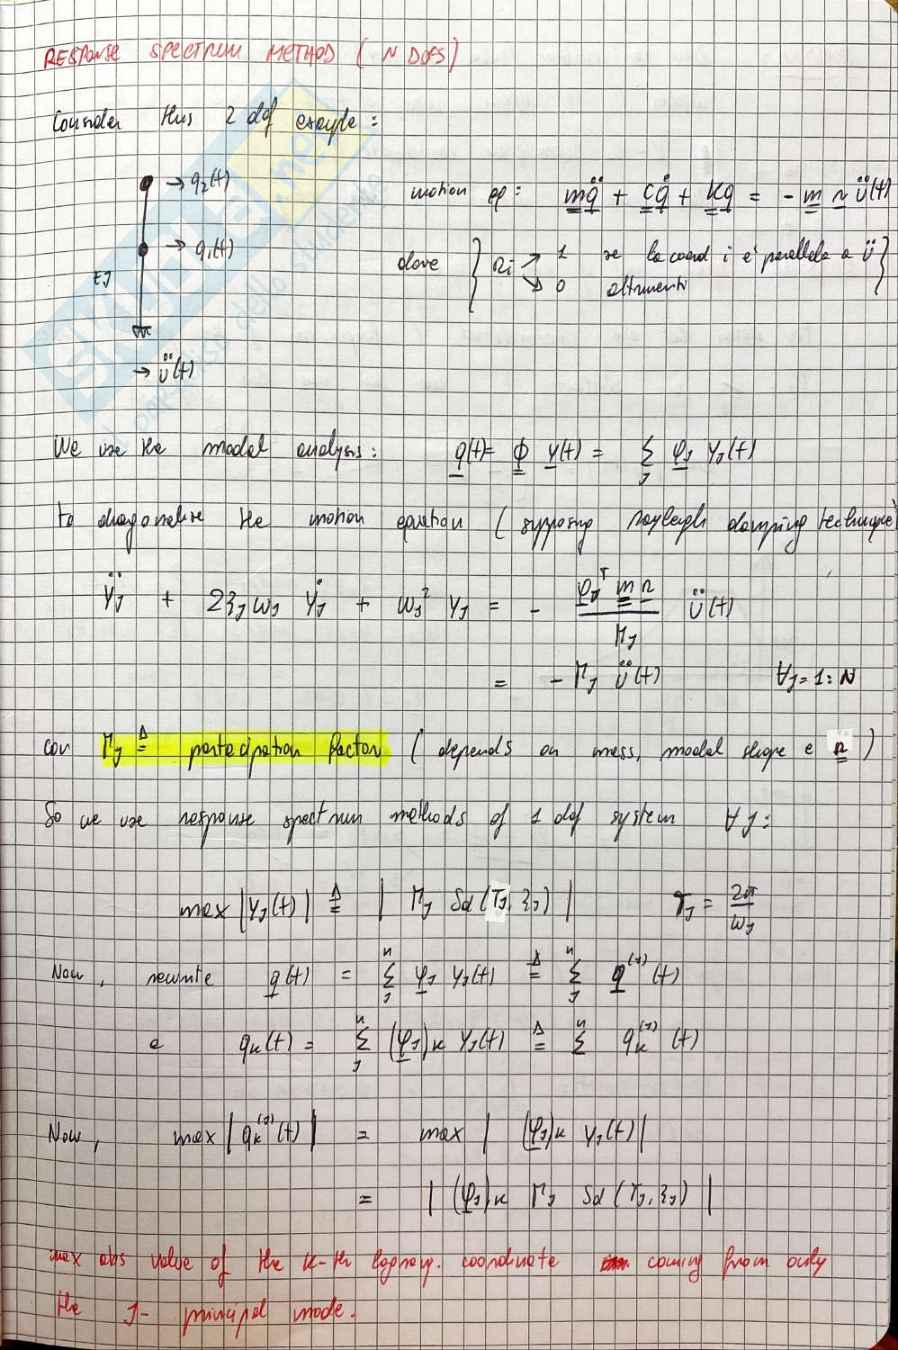 RESPONSE SPECTRUM METHOD ( N DOFS )
Consider this 2 dof example :
→ q₂(t)
→ q₁(t)
EJ
→ ü(t)
motion eq : m q̈ + c q̇ + K q = - m r ü(t)
dove { rᵢ → 1 se la coord i è parallela a ü }
→ 0 altrimenti
We use the modal analysis : q(t) = ϕ y(t) = Σ_J φ_J Y_J(t)
to diagonalise the motion equation ( supposing Rayleigh damping technique )
Ÿ_J + 2ξ_J ω_J Ẏ_J + ω_J² Y_J = - (φ_Jᵀ m r / M_J) ü(t)
= - Γ_J ü(t) ∀J = 1 : N
con Γ_J ≜ partecipation factor ( depends on mess, modal shape e r )
So we use response spectrum methods of 1 dof system ∀J :
max |Y_J(t)| ≜ | Γ_J Sd (T_J, ξ_J) | T_J = 2π/ω_J
Now , rewrite q(t) = Σ_J^n φ_J Y_J(t) ≜ Σ_J^n q^(J)(t)
e q_K(t) = Σ_J^n (φ_J)_K Y_J(t) ≜ Σ^n q_K^(J)(t)
Now , max | q_K^(J)(t) | = max | (φ_J)_K Y_J(t) |
= | (φ_J)_K Γ_J Sd (T_J, ξ_J) |
max abs value of the K-th coordinate coming from only
the J- principal mode.